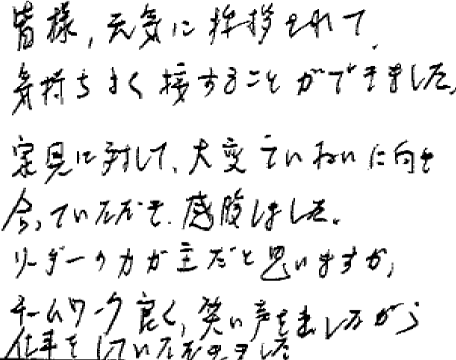 皆様,元気に挨拶されて、
気持ちよく接することができました。
意見に対して、大変ていねいに向き
合っていただき、感服しました。
リーダーの力が主だと思いますが、
チームワーク良く、笑い声を出しながら
仕事をしていただきました